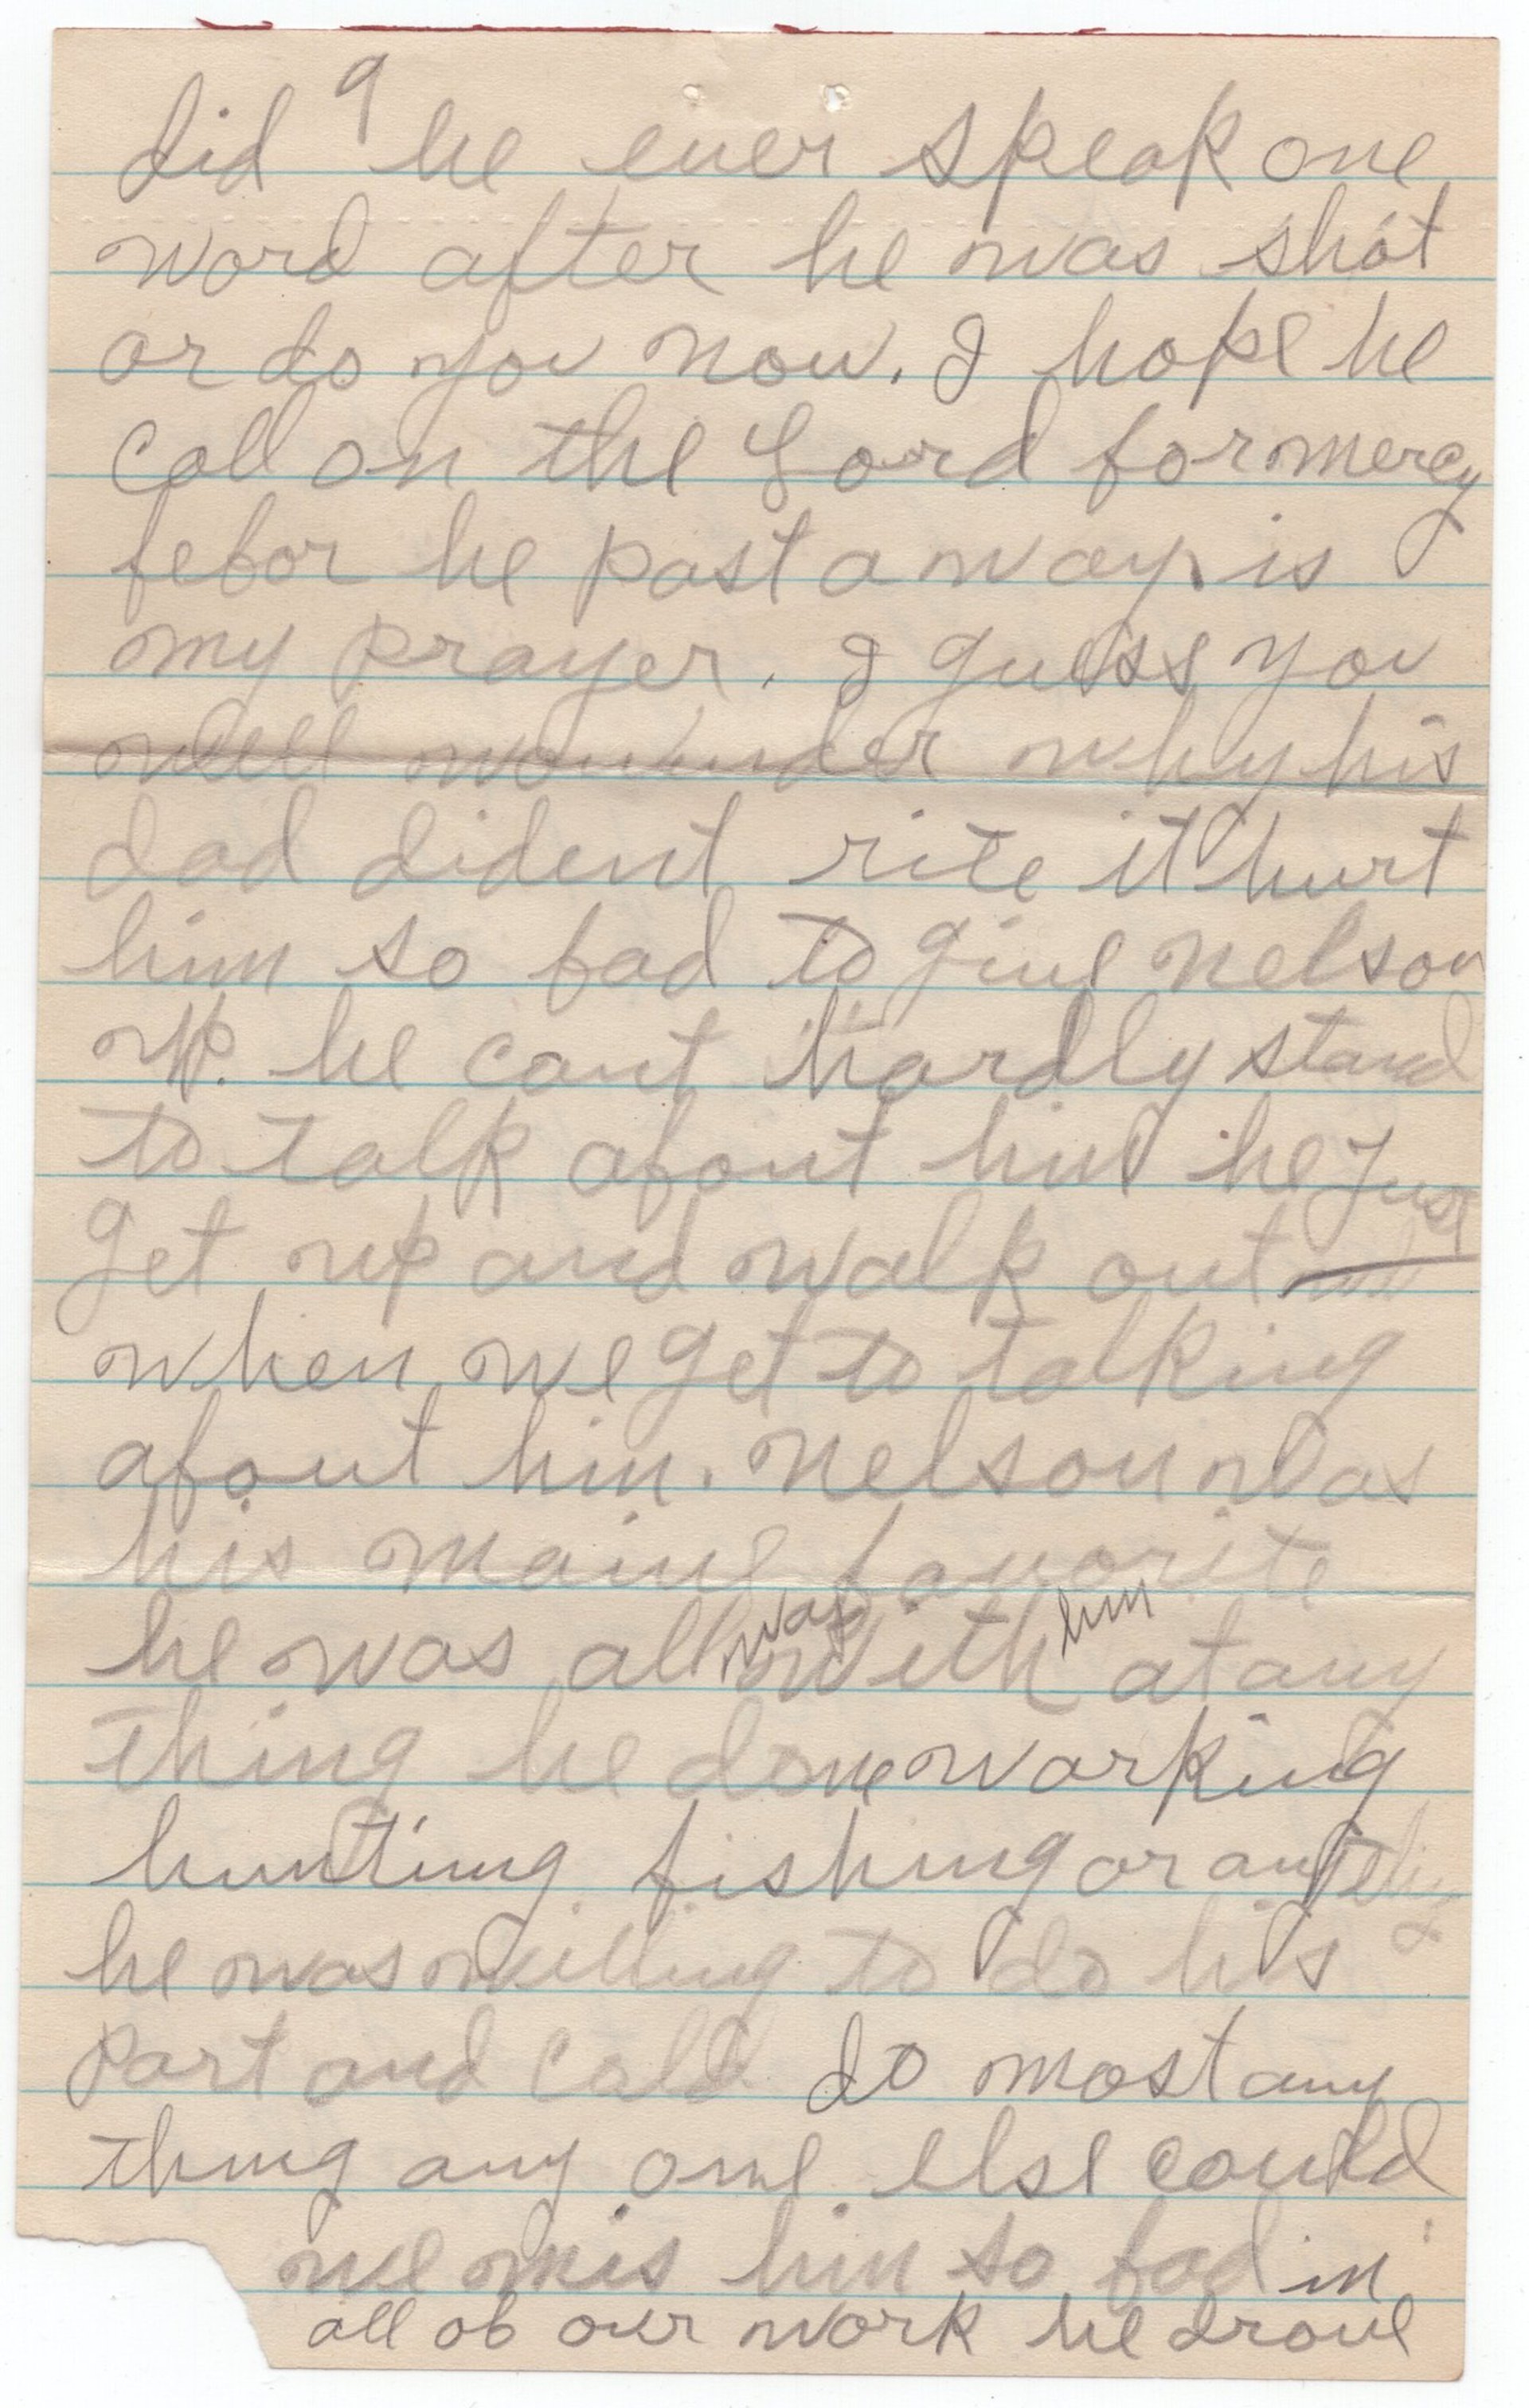 9
did he ever speak one
word after he was shot
or do you now. I hope he
call on the Lord for mercy
befor he past away. is
my prayer. I guess you
will wounder why his
dad dident rite it hurt
him so bad to give nelson
up. he cant hardly stand
to talk about him he Just
get up and walk out
when we get to talking
about him. nelson was
his maine favorite
he was all ways with him at any
thing he done working
hunting fishing or any thing
he was willing to do his
part and cald do most any
thing any one else could
we mis him so bad in
all of our work he drove